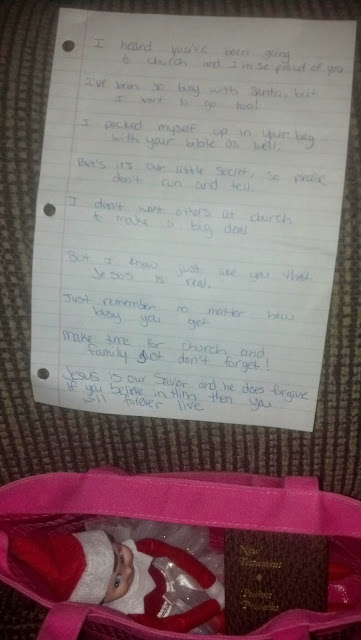 I heard you've been going
to church and I'm so proud of you
I've been so busy with Santa, but
I want to go too!
I packed myself up in your bag
with your bible as well.
But's it's our little secret, so please
don't run and tell.
I don't want others at church
to make a big deal
But I know just like you that
Jesus is real.
Just remember no matter how
busy you get
Make time for church and
family just don't forget!
Jesus is our Savior and he does forgive
If you believe in Him then you
will forever live
New
Testament
Psalms
Proverbs